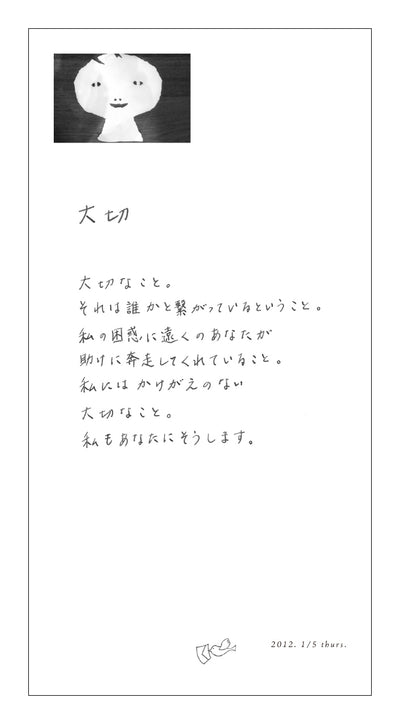 大切
大切なこと。
それは誰かと繋がっているということ。
私の困惑に遠くのあなたが
助けに奔走してくれていること。
私にはかけがえのない
大切なこと。
私もあなたにそうします。
2012. 1/5 thurs.